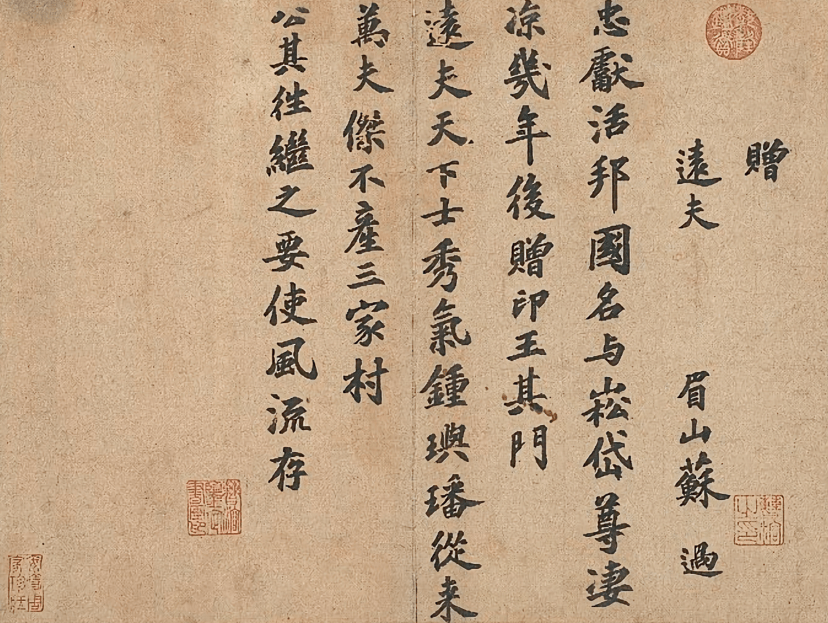 贈
遠夫
眉山蘇過
忠獻活邦國名与崧岱尊淒
涼幾年後贈印王其門
遠夫天下士秀氣鍾璵璠從来
萬夫傑不產三家村
公其往繼之要使風流存